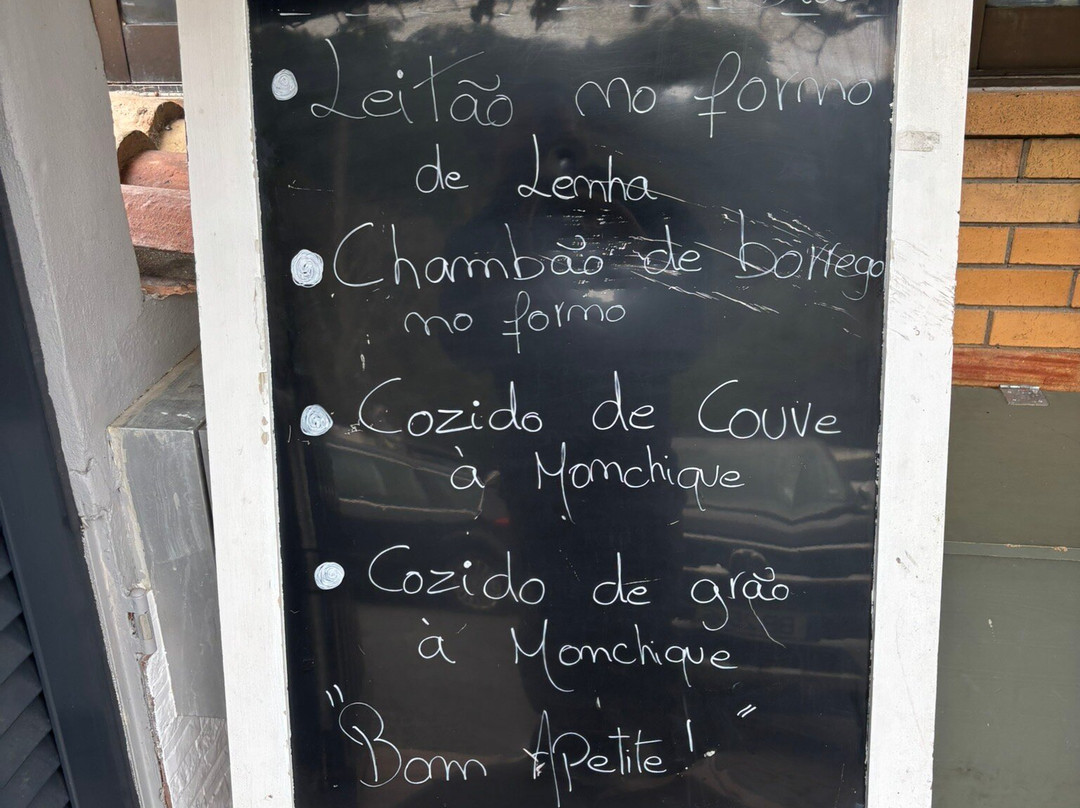 Leitão no forno
de Lenha
Chambão de borrego
no forno
Cozido de Couve
à Monchique
Cozido de grão
à Monchique
"Bom Apetite!"